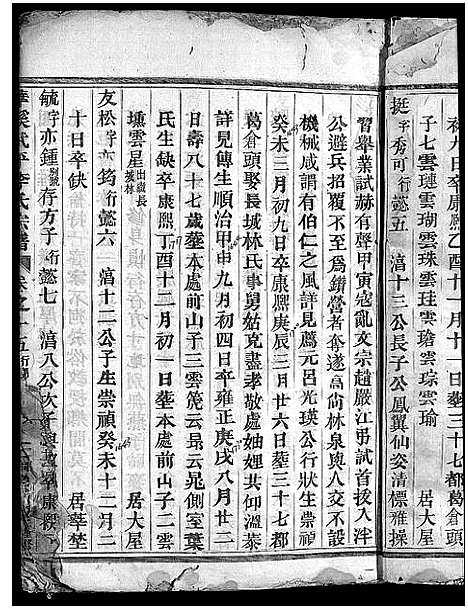 初九日卒康熙乙酉十一月十一日塟三十七都葛倉頭
子七雲璉雲瑚雲珠雲珪雲瑲雲琮雲瑜 居大屋
挺字秀可行懿五 滈十三公長子公鳳翼仙姿清標雅操
習舉業試赫有聲甲寅寇亂文宗趙嚴江弔試首拨入泮
公避兵招覆不至爲鑽營者奪遂高尙林泉與人交不設
機械咸謂有伯仁之風詳見薦元呂光瑛公行狀生崇禎
癸未三月初九日卒康熙庚辰三月廿六日塟三十七都
葛倉頭娶長城林氏事舅姑克盡孝敬處妯娌共仰溫恭
詳見傳生順治甲申九月初四日卒雍正庚戌八月廿二
日壽八十七歲塟本處前山子三雲箎雲昂雲晁側室葉
氏生缺卒康熙丁酉十二月初一日塟本處前山子二雲
壎雲星出繼長坡林 居大屋
友松字亦筠行懿六 滈十二公子生崇禎癸未十二月二
十日卒缺 居
毓字亦鍾別號存方子行懿七 滈八公次子
李氏宗譜 卷之十五